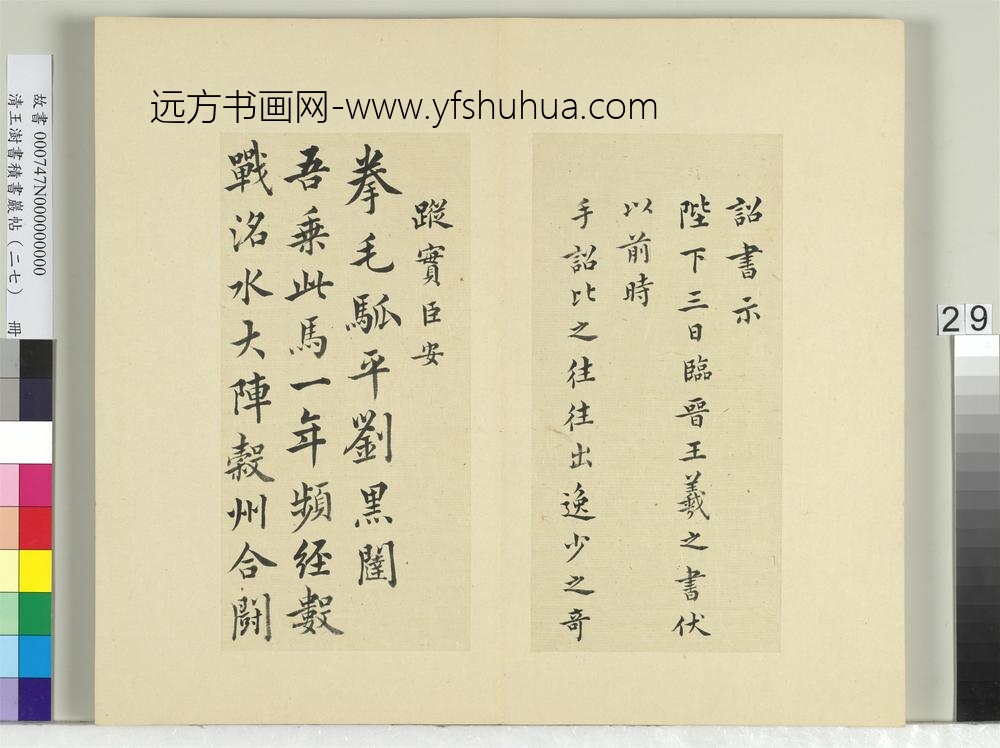 远方书画网-www.yfshuhua.com
詔書示
陛下三日臨晉王羲之書伏
以前時
手詔比之往往出逸少之奇
蹤實臣安
拳毛騧平劉黑闥
吾乗此馬一年頻經數
戰洺水大陣穀州合闘
故書 000747N000000000
清王澍書積書巖帖(二七) 冊
29